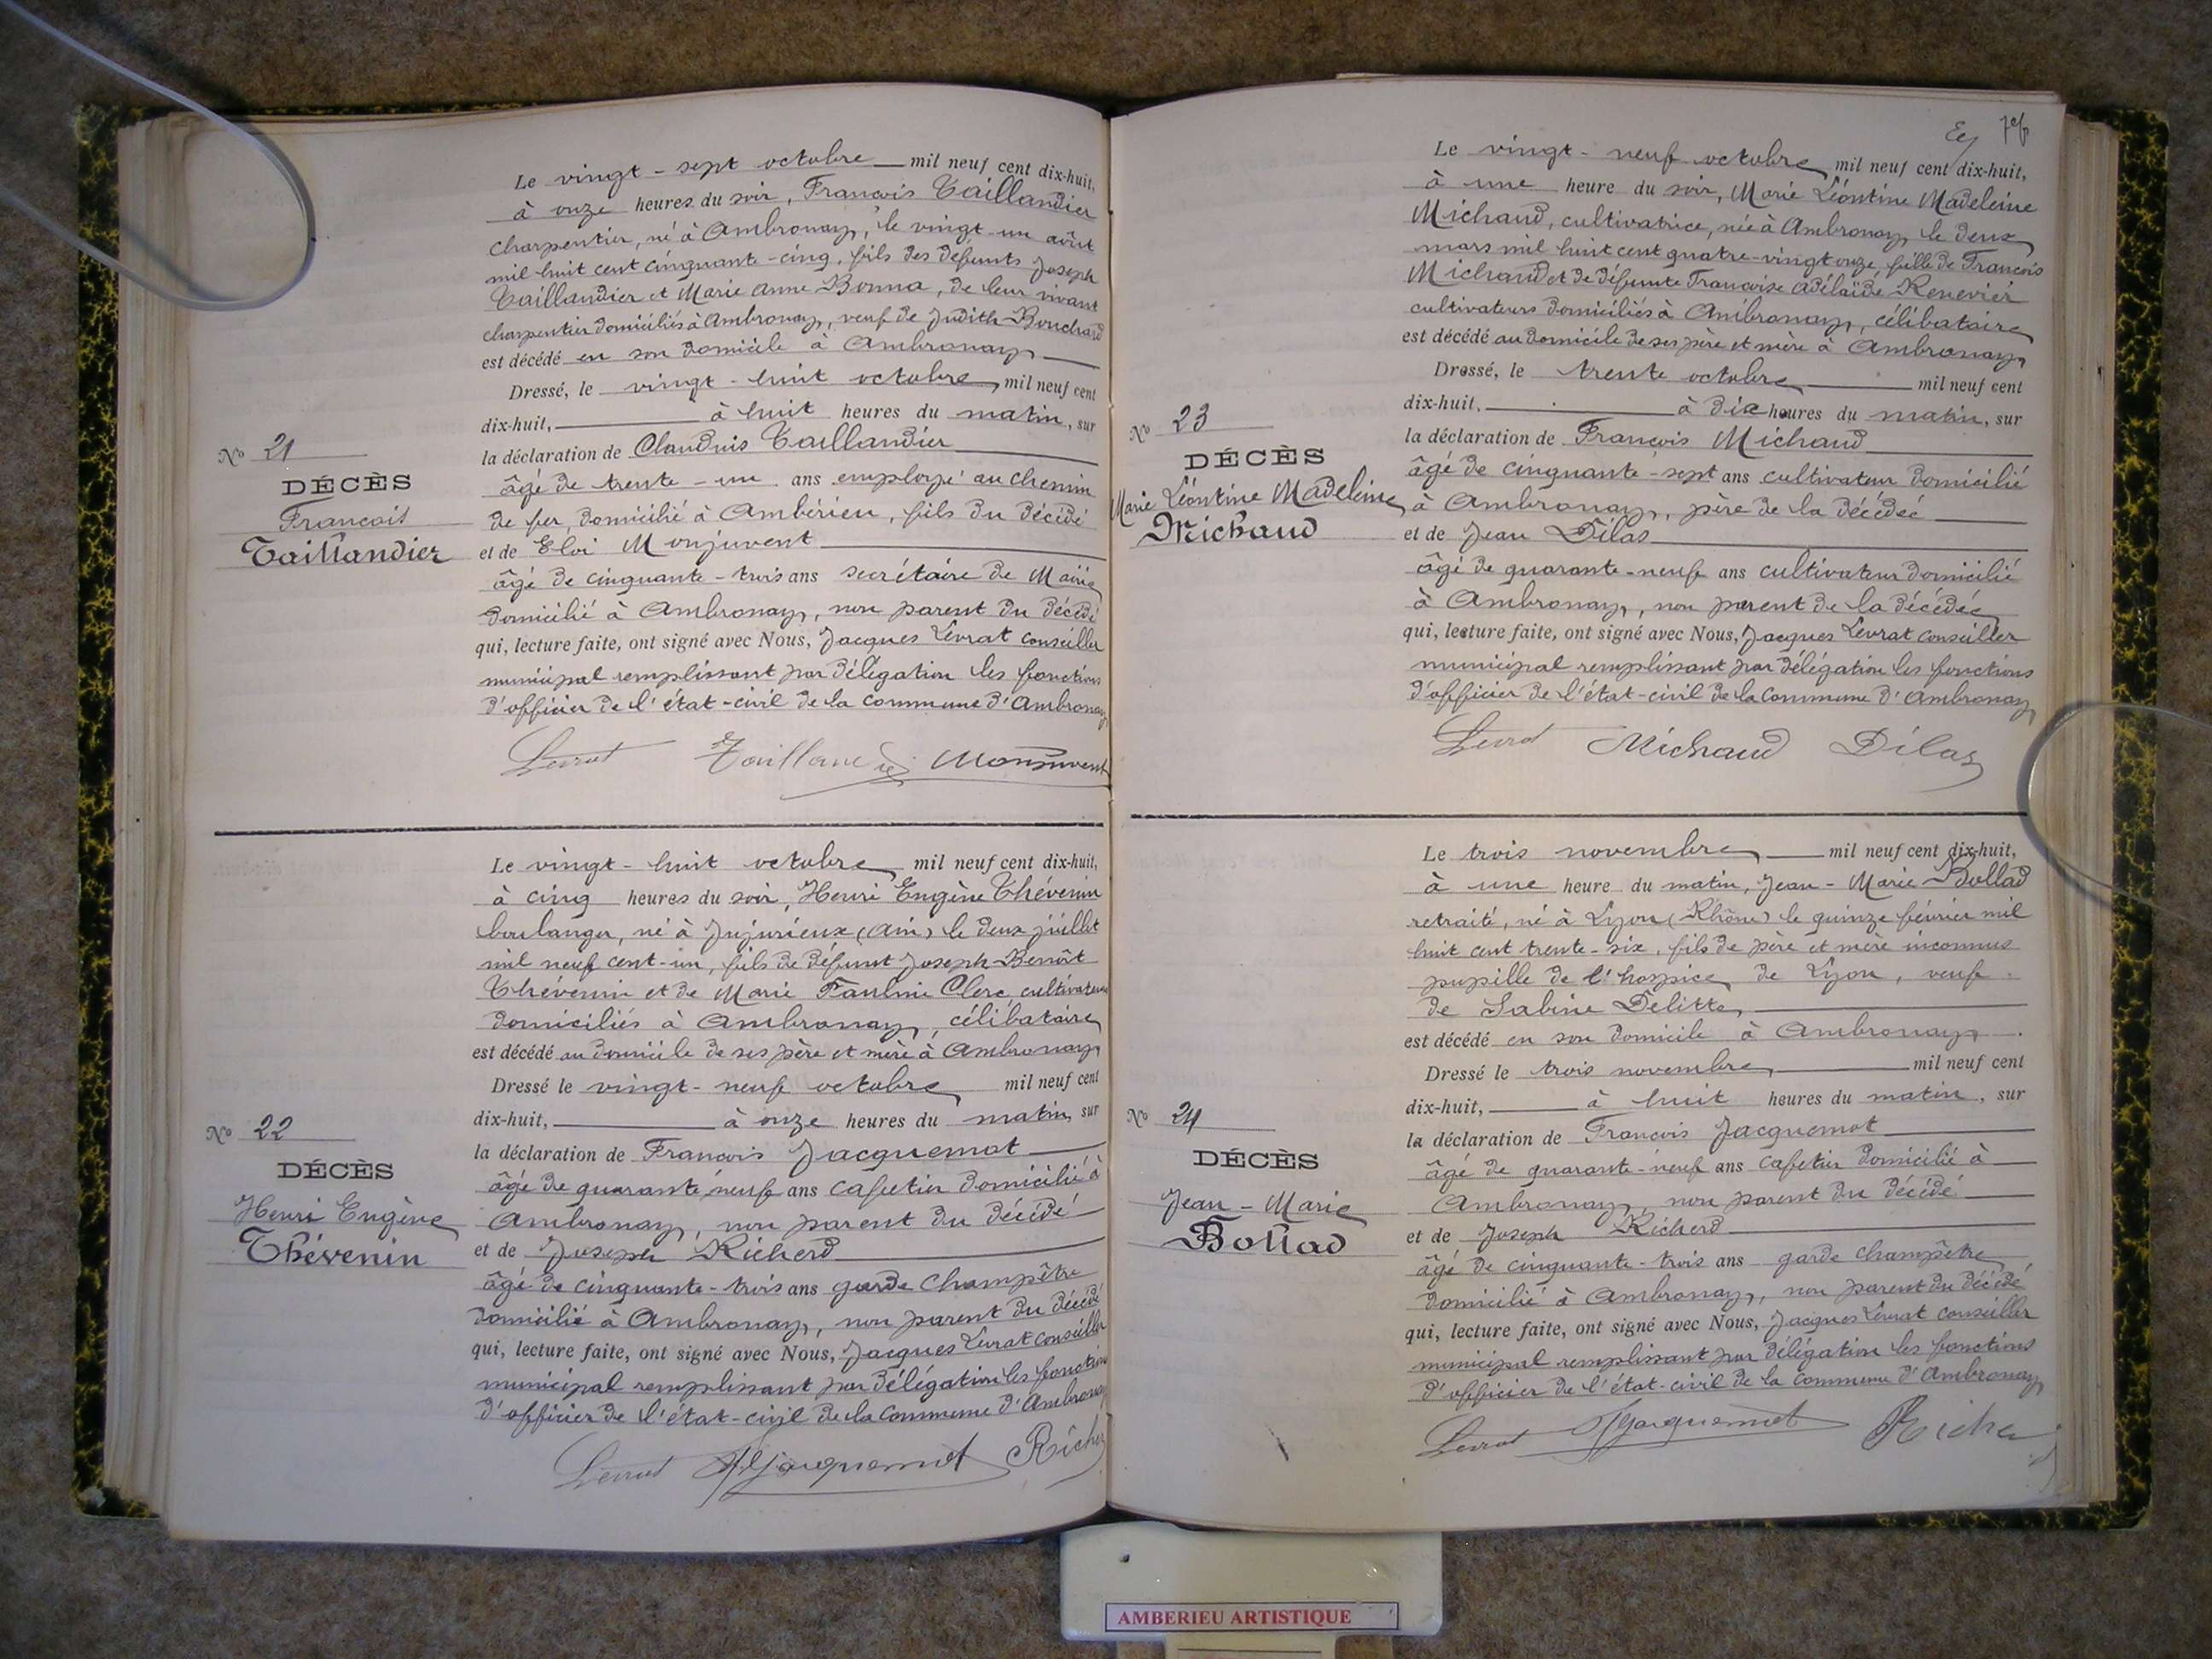 Le vingt-sept octobre mil neuf cent dix-huit,
à onze heures du soir, François Taillandier
charpentier, né à Ambronay, le vingt-un août
mil huit cent cinquante-cinq, fils des défunts Joseph
Taillandier et Marie Anne Bonna, de leur vivant
charpentier domiciliés à Ambronay, veuf de Judith Bouchard
est décédé en son domicile à Ambronay
Dressé, le vingt-huit octobre mil neuf cent
dix-huit, à huit heures du matin, sur
la déclaration de Claudius Taillandier
âgé de trente-un ans employé au chemin
de fer, domicilié à Ambérieu, fils du décédé
et de Eloi Monjuvent
âgé de cinquante-trois ans secrétaire de Mairie
domicilié à Ambronay, non parent du décédé
qui, lecture faite, ont signé avec Nous, Jacques Levrat conseiller
municipal remplissant par délégation les fonctions
d'officier de l'état-civil de la commune d'Ambronay
Levrat Taillandier Monjuvent
N° 21
DÉCÈS
François
Taillandier
Le vingt-huit octobre mil neuf cent dix-huit,
à cinq heures du soir, Henri Eugène Thévenin
boulanger, né à Jujurieux (Ain) le deux juillet
mil neuf cent-un, fils de défunt Joseph Benoît
Thévenin et de Marie Pauline Clerc cultivateurs
domiciliés à Ambronay, célibataire
est décédé au domicile de ses père et mère à Ambronay
Dressé le vingt-neuf octobre mil neuf cent
dix-huit, à onze heures du matin, sur
la déclaration de François Jacquemot
âgé de quarante neuf ans cafetier domicilié à
Ambronay, non parent du décédé
et de Joseph Richerd
âgé de cinquante-trois ans garde champêtre
domicilié à Ambronay, non parent du décédé
qui, lecture faite, ont signé avec Nous, Jacques Levrat conseiller
municipal remplissant par délégation les fonctions
d'officier de l'état-civil de la commune d'Ambronay
Levrat Jacquemot Riche
N° 22
DÉCÈS
Henri Eugène
Thévenin
Le vingt-neuf octobre mil neuf cent dix-huit,
à une heure du soir, Marie Léontine Madeleine
Michaud, cultivatrice, née à Ambronay le deux
mars mil huit cent quatre-vingt onze, fille de François
Michaud et de défunte Françoise Adélaïde Renevier
cultivateurs domiciliés à Ambronay, célibataire
est décédé au domicile de ses père et mère à Ambronay
Dressé, le trente octobre mil neuf cent
dix-huit, à dix heures du matin, sur
la déclaration de François Michaud
âgé de cinquante-sept ans cultivateur domicilié
à Ambronay, père de la décédée
et de Jean Dilas
âgé de quarante-neuf ans cultivateur domicilié
à Ambronay, non parent de la décédée
qui, lecture faite, ont signé avec Nous, Jacques Levrat conseiller
municipal remplissant par délégation les fonctions
d'officier de l'état-civil de la commune d'Ambronay
Levrat Michaud Dilas
N° 23
DÉCÈS
Marie Léontine Madeleine
Michaud
Le trois novembre mil neuf cent dix-huit,
à une heure du matin, Jean-Marie Bollad
retraité, né à Lyon (Rhône) le quinze février mil
huit cent trente-six, fils de père et mère inconnus
pupille de l'hospice de Lyon, veuf
de Sabine Delitte
est décédé en son domicile à Ambronay
Dressé le trois novembre mil neuf cent
dix-huit, à huit heures du matin, sur
la déclaration de François Jacquemot
âgé de quarante-neuf ans cafetier domicilié à
Ambronay, non parent du décédé
et de Joseph Richerd
âgé de cinquante-trois ans garde champêtre
domicilié à Ambronay, non parent du décédé
qui, lecture faite, ont signé avec Nous, Jacques Levrat conseiller
municipal remplissant par délégation les fonctions
d'officier de l'état-civil de la commune d'Ambronay
Levrat Jacquemot Riche
N° 24
DÉCÈS
Jean-Marie
Bollad
AMBERIEU ARTISTIQUE